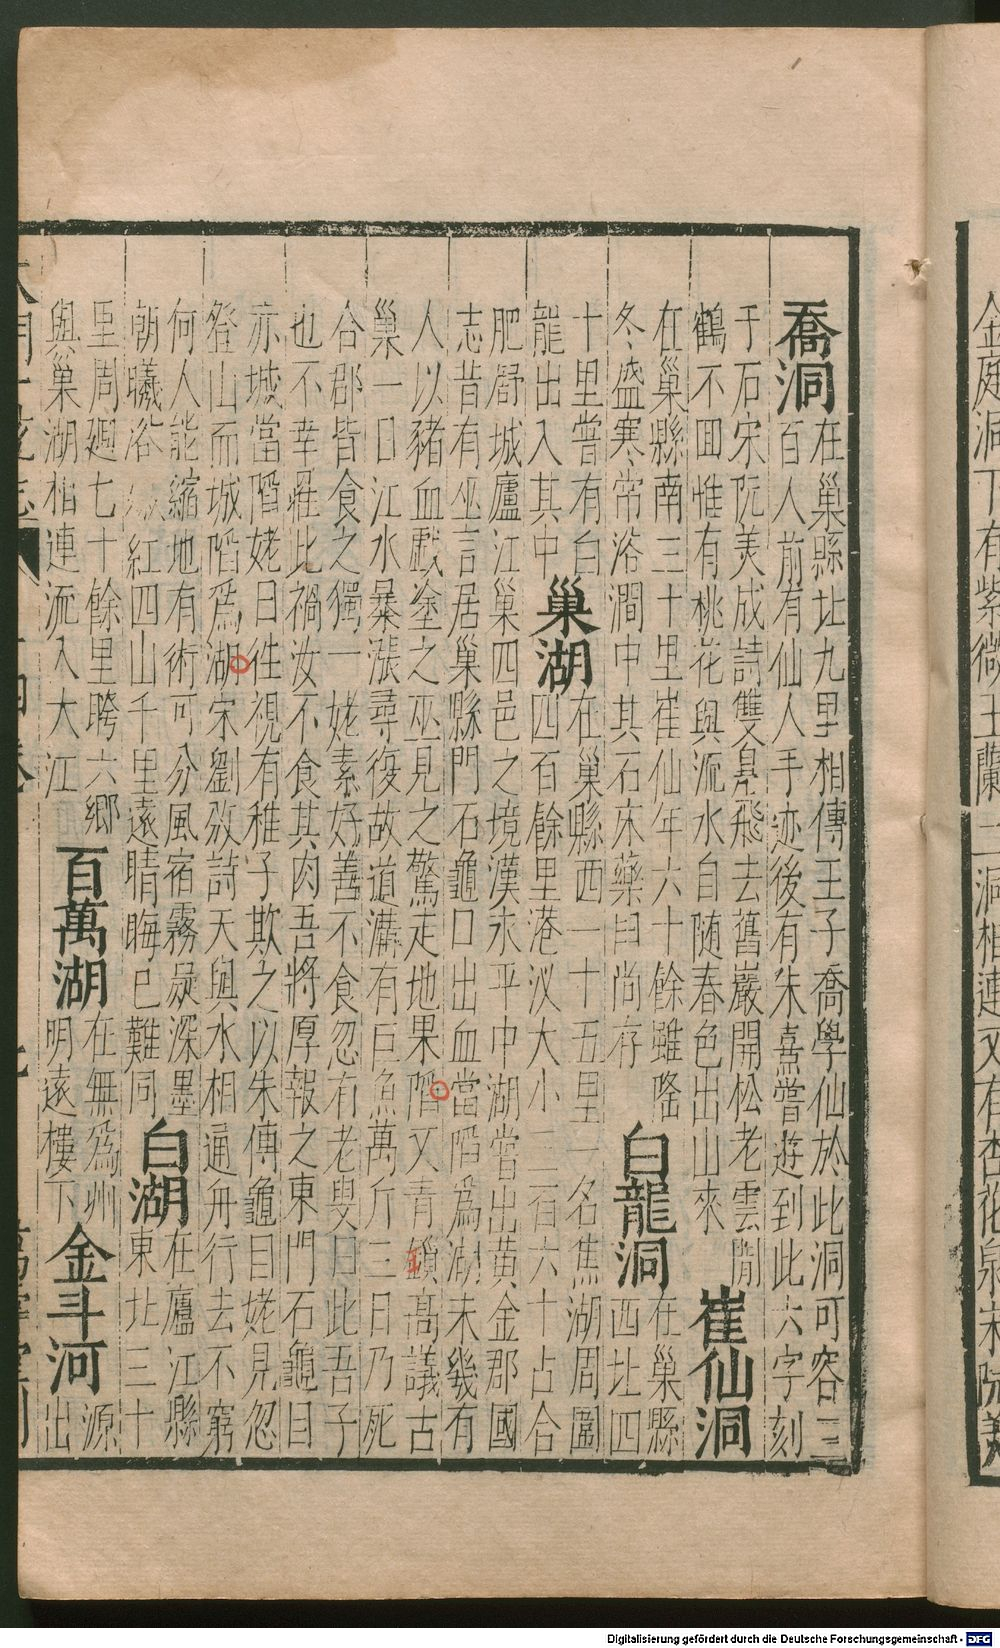 金庭洞下有紫微王蘭二洞相連又有杏花泉宋阮美
喬洞
在巢縣北九里相傳王子喬學仙於此洞可容三
百人前有仙人手迹後有朱熹嘗遊到此六字刻
手石宋阮美成詩雙鳧飛去舊巖開松老雲閒
鶴不回惟有桃花與流水自随春色出山來
崔仙洞
在巢縣南三十里崔仙年六十餘雖隆
冬盛寒常浴澗中其石床藥臼尚存
白龍洞
在巢縣
西北四
十里嘗有白
龍出入其中
巢湖
在巢縣西一十五里一名焦湖周圍
四百餘里港汊大小三百六十占合
肥舒城廬江巢四邑之境漢永平中湖嘗出黃金郡國
志昔有巫言居巢縣門石龜口出血當陷爲湖未幾有
人以豬血戲塗之巫見之驚走地果陷又青鎖高議古
巢一日江水暴漲尋復故道溝有巨魚萬斤三日乃死
合郡皆食之獨一姥素好善不食忽有老叟曰此吾子
也不幸罹此禍汝不食其肉吾將厚報之東門石龜目
赤城當陷姥日往視有稚子欺之以朱傳龜目姥見忽
登山而城陷爲湖宋劉攽詩天與水相通舟行去不窮
何人能縮地有術可分風宿霧昃深墨
朝曦浴紅四山千里遠晴晦已難同
白湖
在廬江縣
東北三十
里周廻七十餘里跨六鄉
與巢湖相連流入大江
百萬湖
在無爲州
明遠樓下
金斗河
源
出
Digitalisierung gefördert durch die Deutsche Forschungsgemeinschaft - DFG